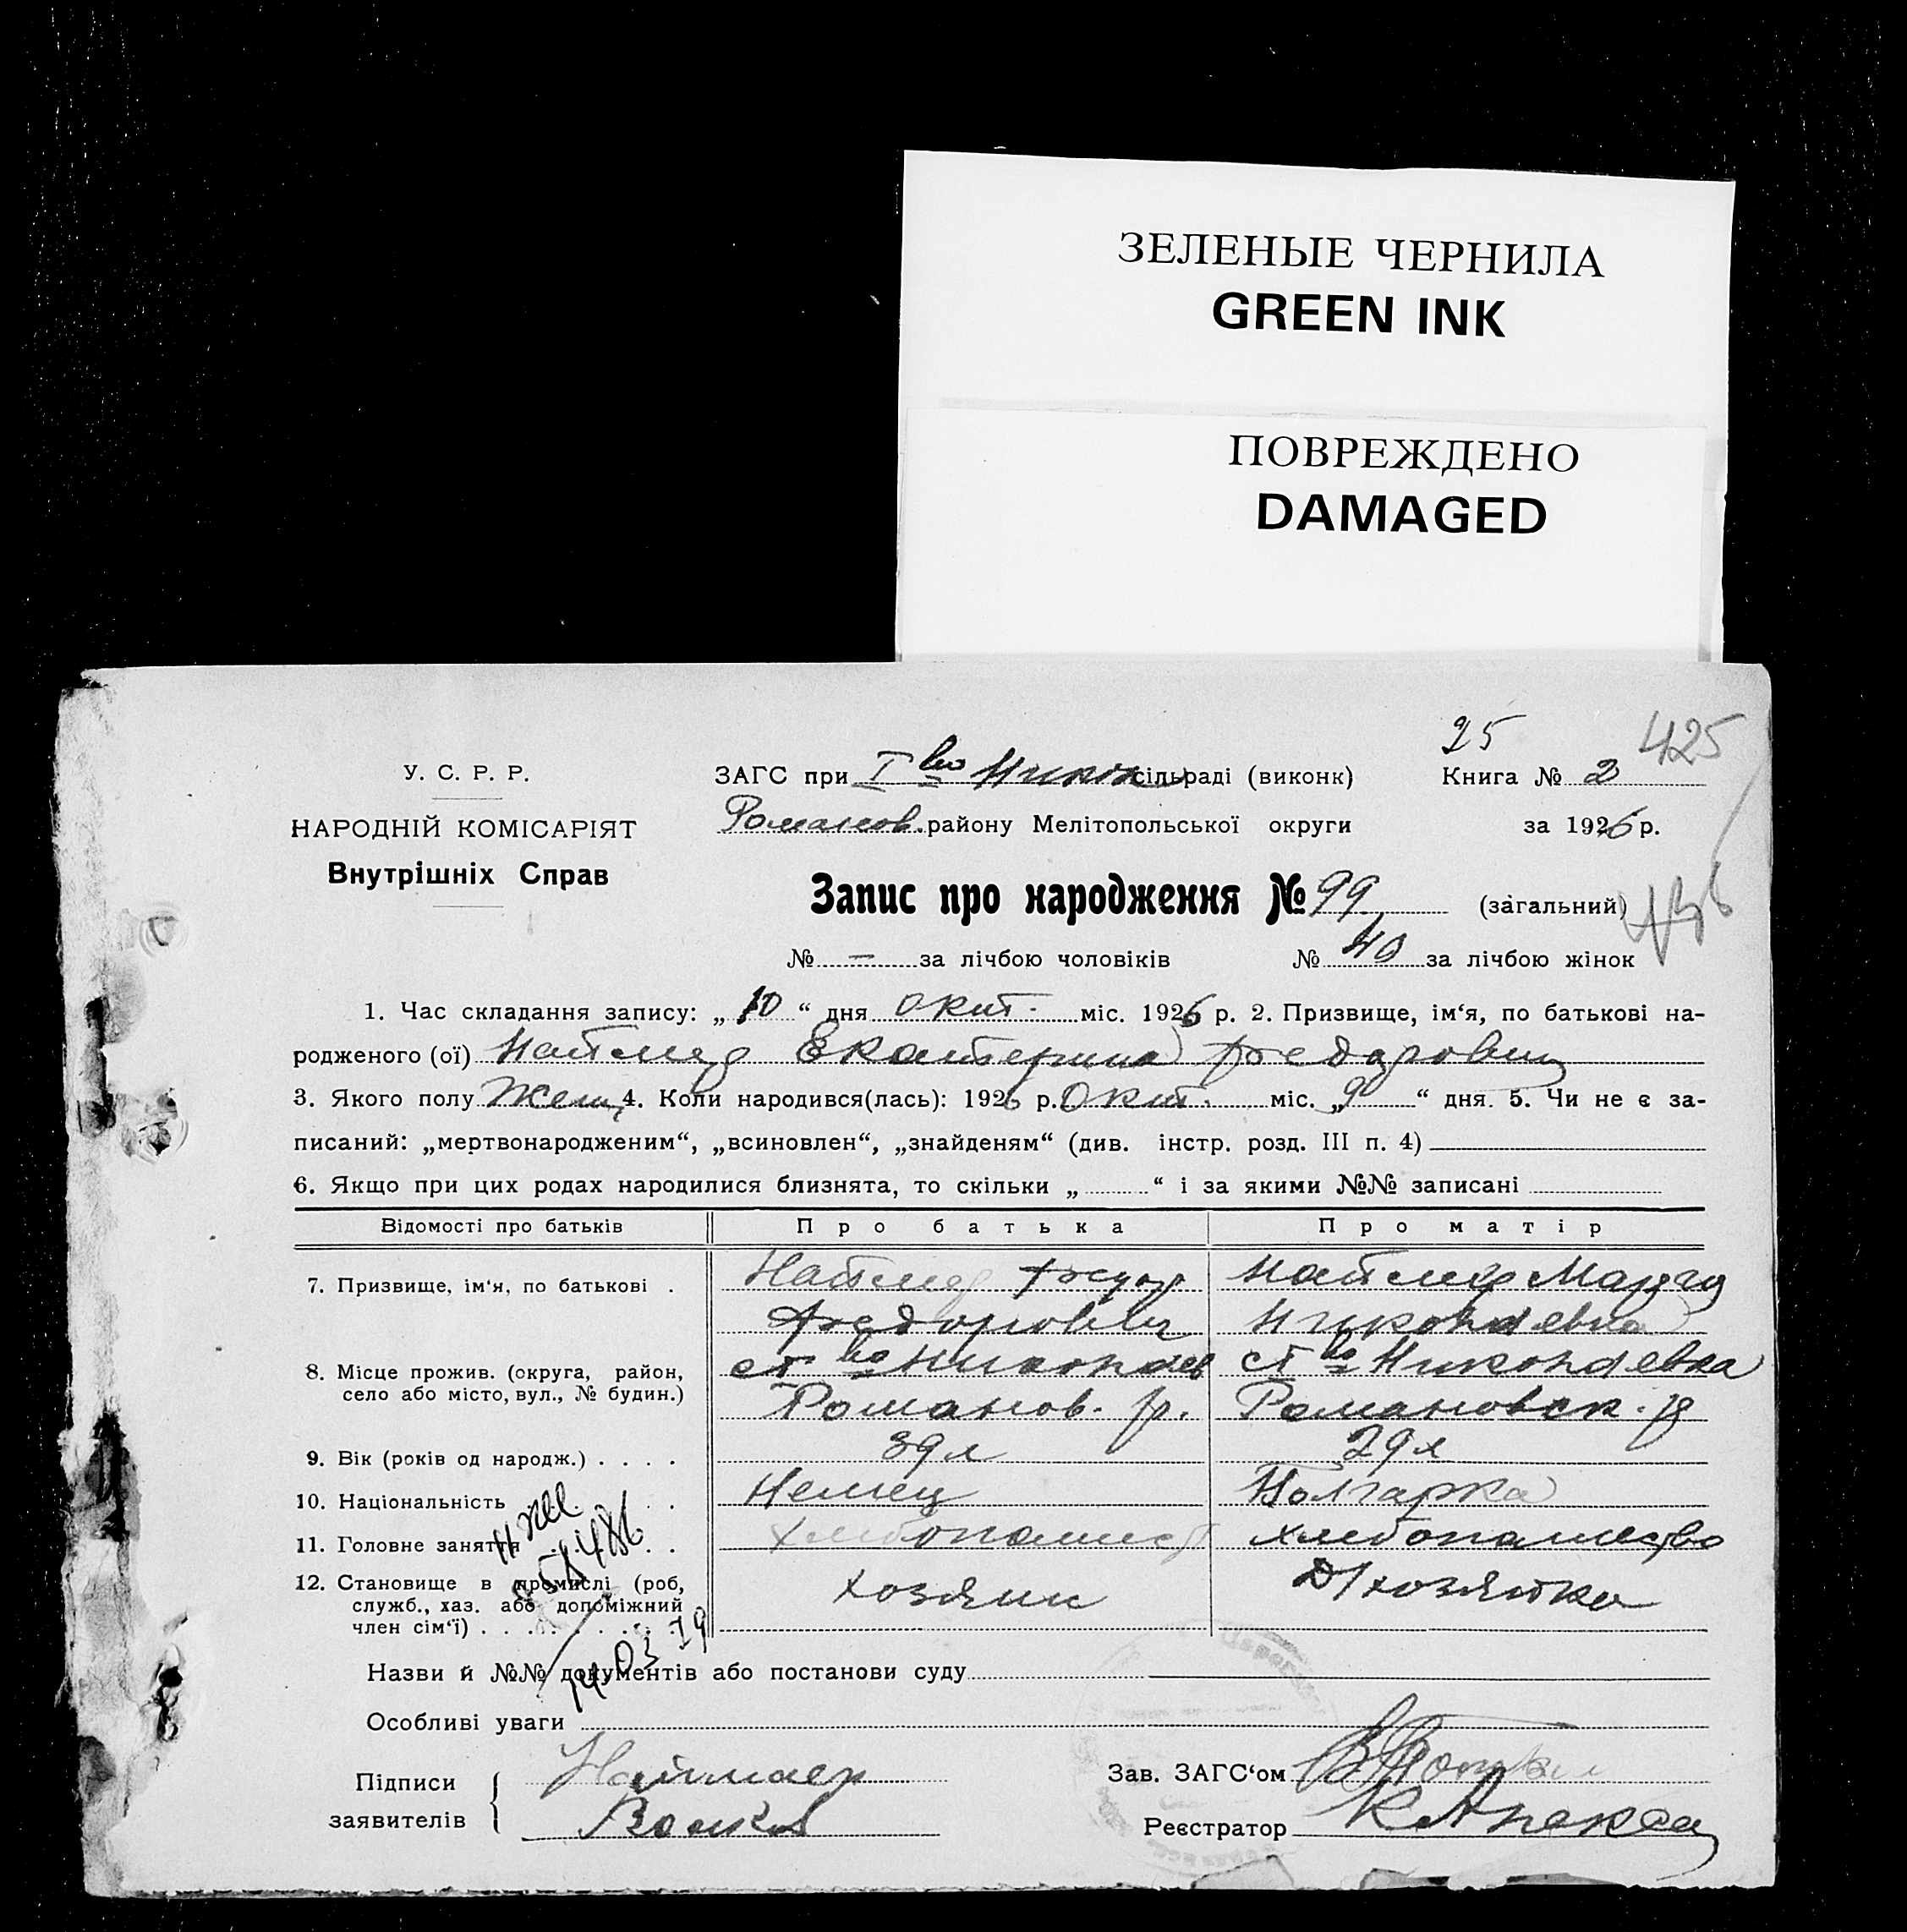 ЗЕЛЕНЫЕ ЧЕРНИЛА
GREEN INK
ПОВРЕЖДЕНО
DAMAGED
25 425
У. С. Р. Р.
НАРОДНІЙ КОМІСАРІЯТ
Внутрішніх Справ
ЗАГС при І во Никол сільраді (виконк) Книга № 2
Романов. району Мелітопольської округи за 1926 р.
Запис про народження № 99 (загальний)
№ — за лічбою чоловіків № 40 за лічбою жінок
1. Час складання запису: „ 10 “ дня окт. міс. 1926 р. 2. Призвище, ім‘я, по батькові на-
родженого (ої) Екатерина
3. Якого полу Жен. 4. Коли народився(лась): 1926 р. Окт. міс. „ 9 “ дня. 5. Чи не є за-
писаний: „мертвонародженим“, „всиновлен“, „знайденям“ (див. інстр. розд. III п. 4)
6. Якщо при цих родах народилися близнята, то скільки „ “ і за якими №№ записані
Відомості про батьків Про батька Про матір
7. Призвище, ім‘я, по батькові .
Федорович Николаевна
8. Місце прожив. (округа, район,
село або місто, вул., № будин.)
Николаев Николаевка
Романов. р. Романовск. р
9. Вік (років од народж.) . . . . 39 л 29 л
10. Національність Немец Болгарка
11. Головне заняття хлебопашест хлебопашество
12. Становище в промислі (роб,
служб., хаз. або допоміжний
член сім‘ї) . . . хозяин Д/хозяйка
14.03 79
Назви й №№ документів або постанови суду
Особливі уваги
Підписи
заявителів
Наймаер
Зав. ЗАГС‘ом
Реєстратор